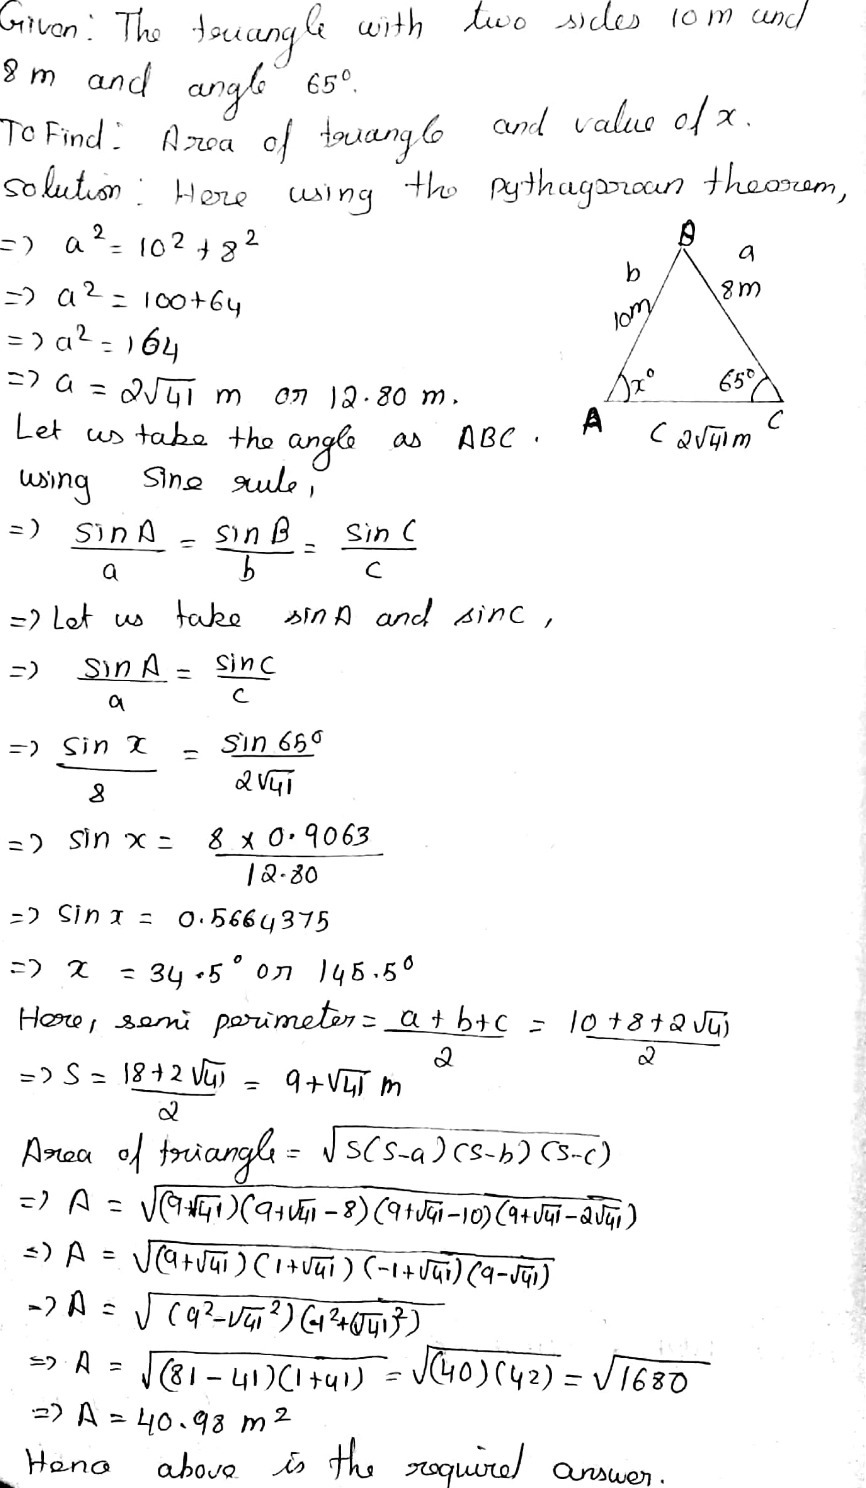 Given: The triangle with two sides 10 m and
8 m and angle 65°.
To Find: Area of triangle and value of x.
Solution: Here using the pythagorean theorem,
=> a² = 10² + 8²
=> a² = 100+64
=> a² = 164
=> a = 2√41 m or 12.80 m.
B
b
a
10m
8m
x°
65°
A
C
c 2√41m
Let us take the angle as ABC.
using Sine rule,
=> sin A / a = sin B / b = sin C / c
=> Let us take sin A and sin C,
=> sin A / a = sin C / c
=> sin x / 8 = sin 65° / 2√41
=> sin x = 8 x 0.9063 / 12.80
=> sin x = 0.5664375
=> x = 34.5° or 145.5°
Here, semi perimeter = a+b+c / 2 = 10+8+2√41 / 2
=> S = 18+2√41 / 2 = 9+√41 m
Area of triangle = √s(s-a)(s-b)(s-c)
=> A = √(9+√41)(9+√41-8)(9+√41-10)(9+√41-2√41)
=> A = √(9+√41)(1+√41)(-1+√41)(9-√41)
=> A = √(9²-√41²)(-1²+(√41)²)
=> A = √(81-41)(1+41) = √(40)(42) = √1680
=> A = 40.98 m²
Hence above is the required answer.